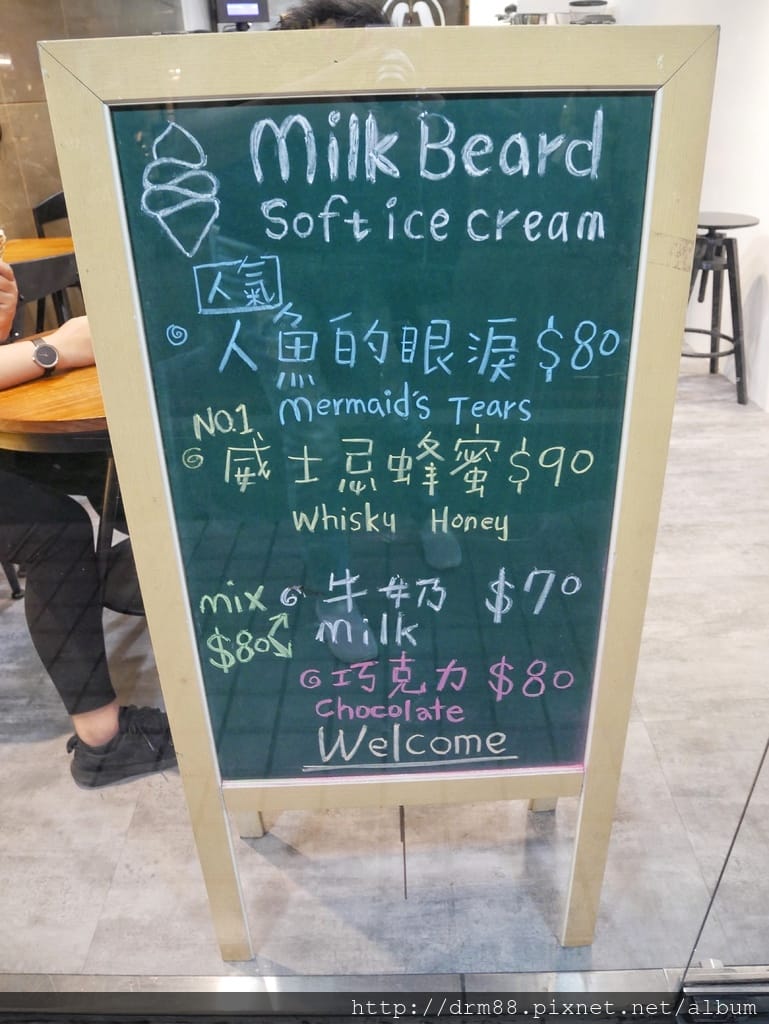 Milk Beard
Soft ice cream
人氣
人魚的眼淚 $80
Mermaid's Tears
NO.1
威士忌蜂蜜 $90
Whisky Honey
牛奶 $70
mix
milk
$80
巧克力 $80
Chocolate
Welcome
http://drm88.pixnet.net/album